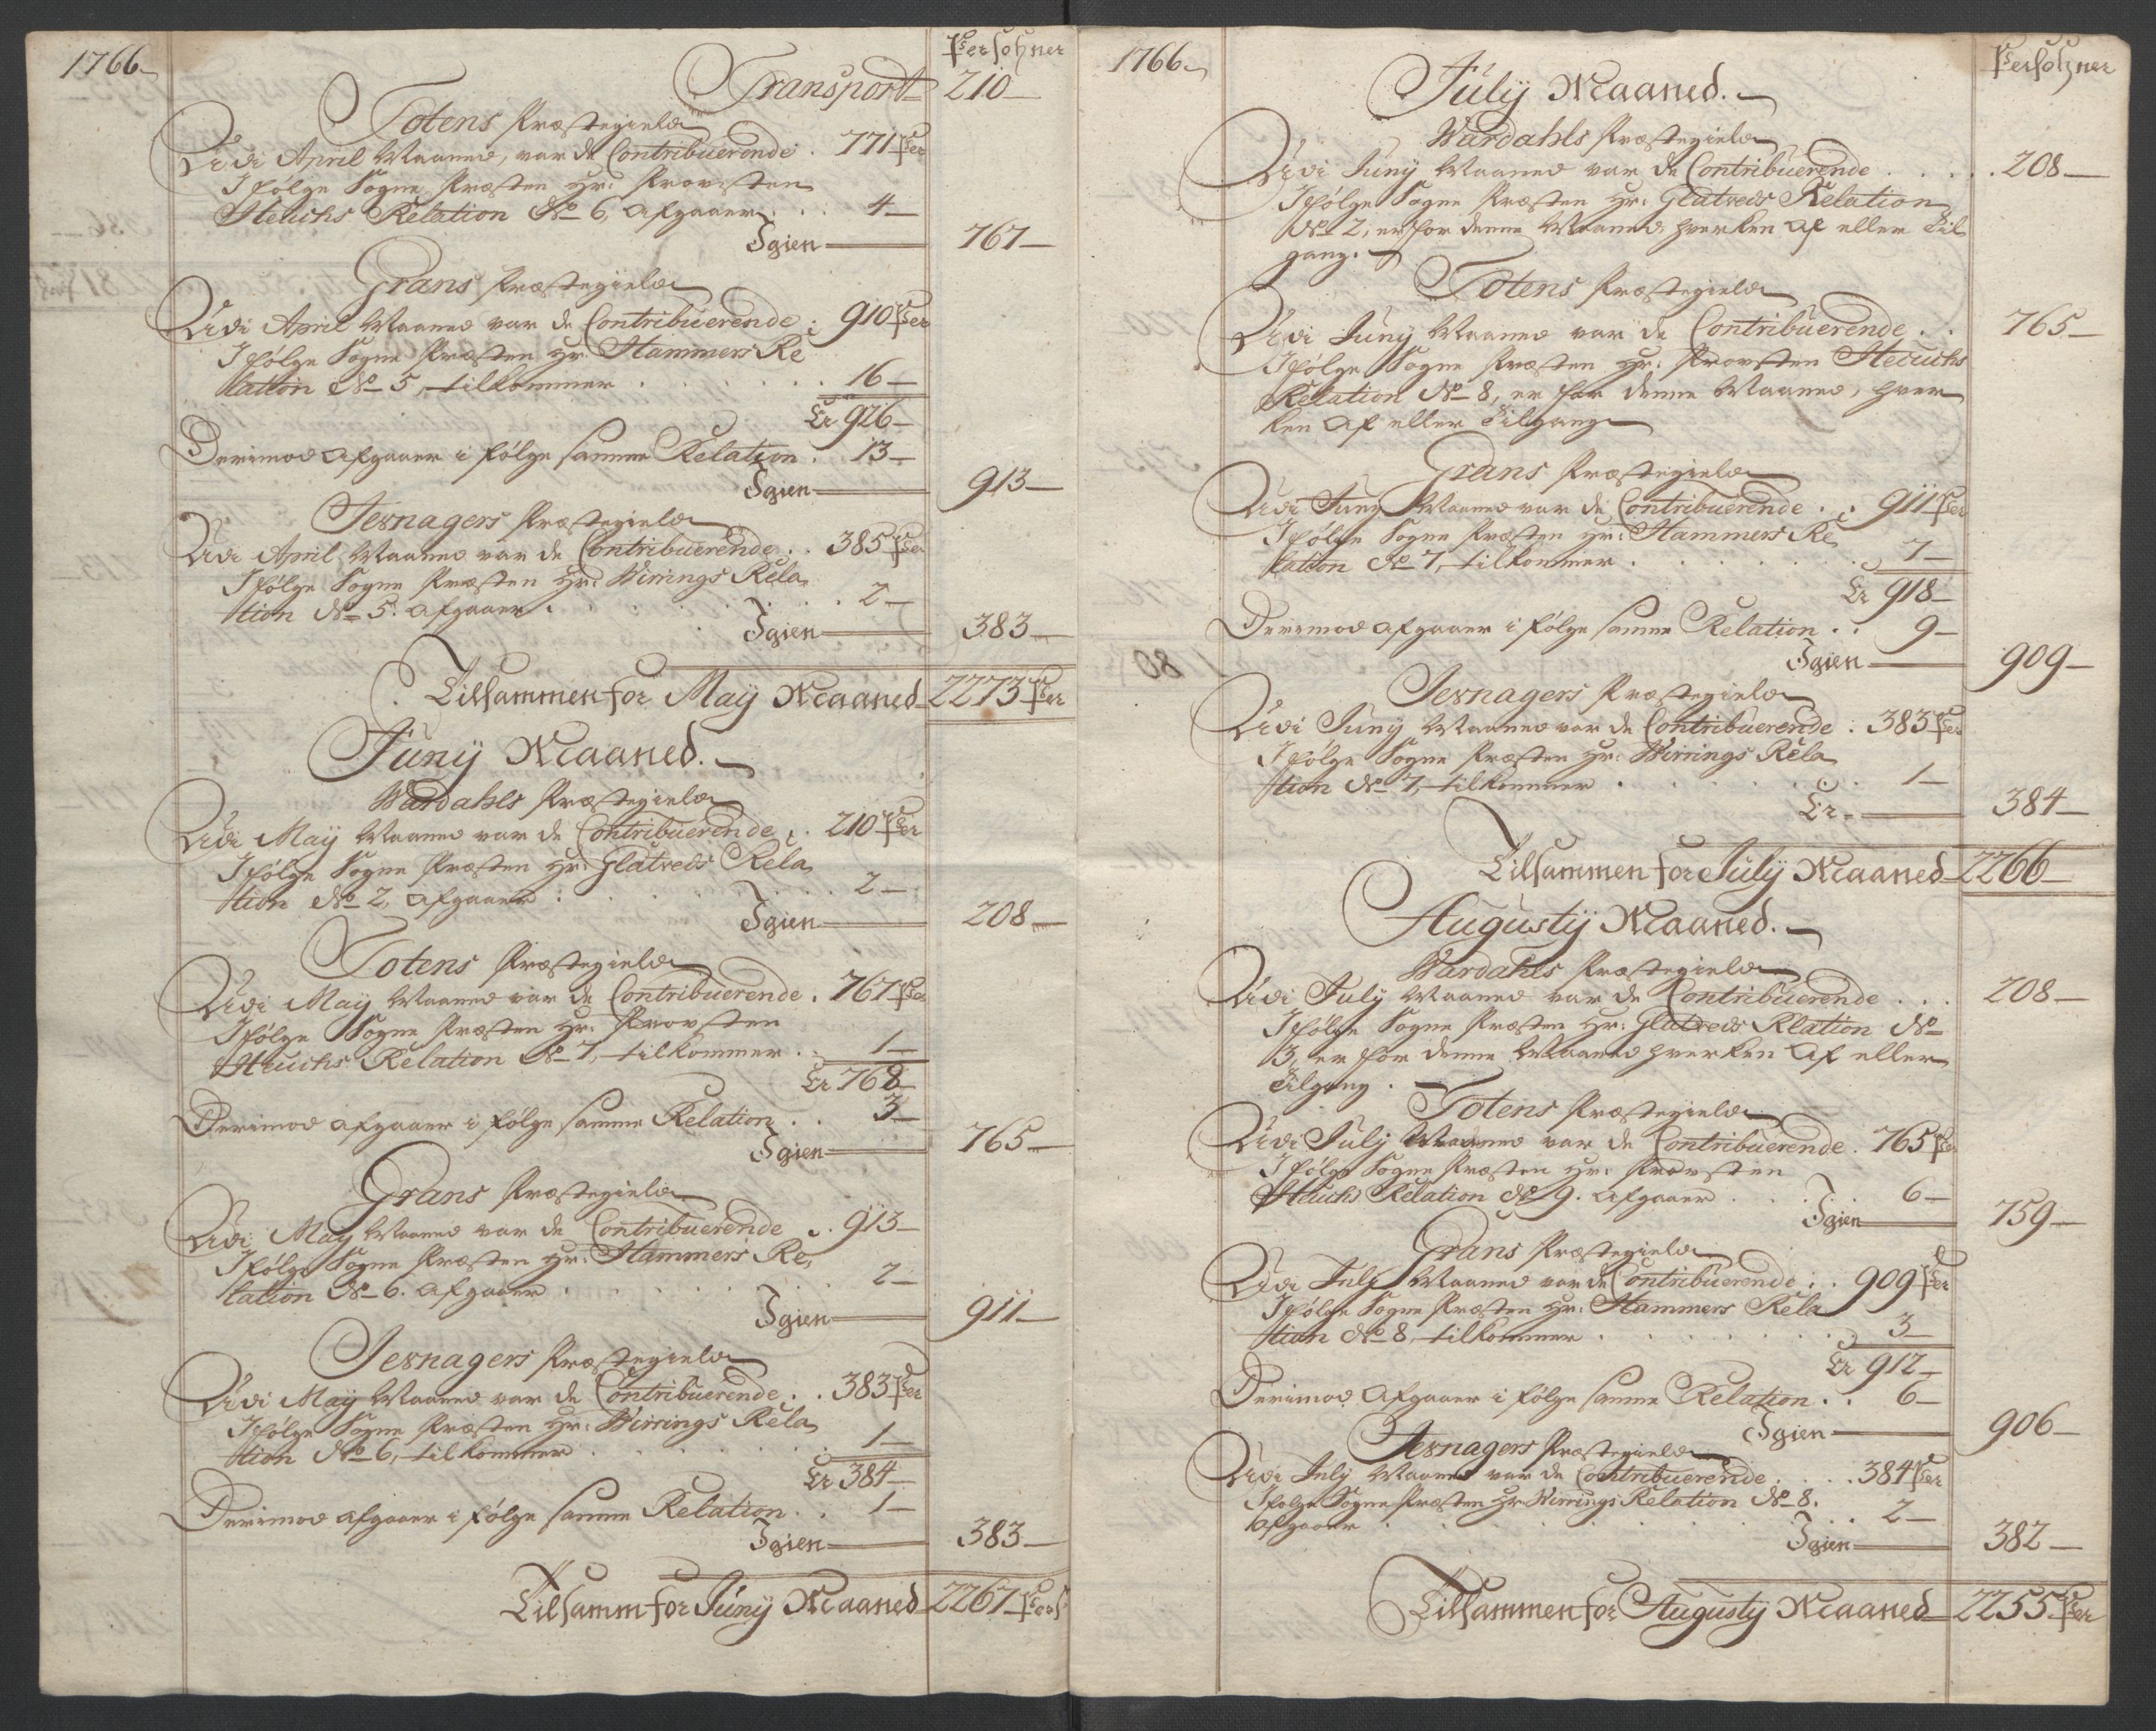 1766 Persohner
Transport 210
Totens Præstegield
Udi April Maaned, var de Contribuerende . 771 Per
Ifølge Sogne Præsten Hr: Provsten
Heuchs Relation No 6, Afgaaer . . 4
Igien 767
Grans Præstegield
Udi April Maaned var de Contribuerende : 910 Per
Ifølge Sogne Præsten Hr: Hammers Re
lation No 5, tilkommer . . . . . . 16
Er 926
Derimod afgaaer i følge samme Relation . 13
Igien 913
Jevnagers Præstegield
Udi April Maaned var de Contribuerende . . 385 Per
Ifølge Sogne Præsten Hr: Wirrings Rela
tion No 5. afgaaer . . . . . . 2
Igien 383
Tilsammen for Maÿ Maaned 2273 Per
Junÿ Maaned.
Wardahls Præstegield
Udi Maÿ Maaned var de Contribuerende . . 210 Per
Ifølge Sogne Præsten Hr: Glatveds Rela
tion No 2, afgaaer . . . . . 2
Igien 208
Totens Præstegield
Udi Maÿ Maaned var de Contribuerende . 767 Per
Ifølge Sogne Præsten Hr: Provsten
Heuchs Relation No 7, tilkommer . . 1
Er 768
Derimod afgaaer i følge samme Relation . . 3
Igien 765
Grans Præstegield
Udi Maÿ Maaned var de Contribuerende . . 913
Ifølge Sogne Præsten Hr: Hammers Re
lation No 6. afgaaer . . . . . . 2
Igien 911
Jevnagers Præstegield
Udi Maÿ Maaned var de Contribuerende . . 383 Per
Ifølge Sogne Præsten Hr: Wirrings Rela
tion No 6, tilkommer . . . . . 1
Er 384
Derimod afgaaer i følge samme Relation . . 1
Igien 383
Tilsamm for Junÿ Maaned 2267 Pers
1766 Persohner
Julÿ Maaned.
Wardahls Præstegield
Udi Junÿ Maaned var de Contribuerende . . . . . 208
Ifølge Sogne Præsten Hr: Glatveds Relation
No 2, er for denne Maaned hverken Af eller Til
gang.
Totens Præstegield
Udi Junÿ Maaned var de Contribuerende . . 765
Ifølge Sogne Præsten Hr: Provsten Heuchs
Relation No 8, er for denne Maaned, hver
ken Af eller Tilgang
Grans Præstegield
Udi Junÿ Maaned var de Contribuerende . . 911 Per
Ifølge Sogne Præsten Hr: Hammers Re
lation No 7, tilkommer . . . . . . 7
Er 918
Derimod afgaaer i følge samme Relation . . 9
Igien 909
Jevnagers Præstegield
Udi Junÿ Maaned var de Contribuerende : 383 Per
Ifølge Sogne Præsten Hr: Wirrings Rela
tion No 7, tilkommer . . . . . . 1
Er 384
Tilsammen for Julÿ Maaned 2266
Augustÿ Maaned.
Wardahls Præstegield
Udi Julÿ Maaned var de Contribuerende . . . 208
Ifølge Sogne Præsten Hr: Glatveds Rlation No
3, er for denne Maaned hverken Af eller
Tilgang .
Totens Præstegield
Udi Julÿ Maaned var de Contribuerende . 765 Per
Ifølge Sogne Præsten Hr: Provsten
Heuchs Relation No 9. afgaaer . . . . 6
Igien 759
Grans Præstegield
Udi Julÿ Maaned var de Contribuerende : . 909 Per
Ifølge Sogne Præsten Hr: Hammers Rela
tion No 8, tilkommer . . . . . . . 3
Er 912
Derimod Afgaaer i følge samme Relation . . 6
Igien 906
Jevnagers Præstegield
Udi Julÿ Maaned var de Contribuerende . . . . 384 Per
Ifølge Sogne Præsten Hr Wirrings Relation No 8.
Afgaaer . . . . . . . . . 2
Igien 382
Tilsammen for Augustÿ Maaned 2255 Per